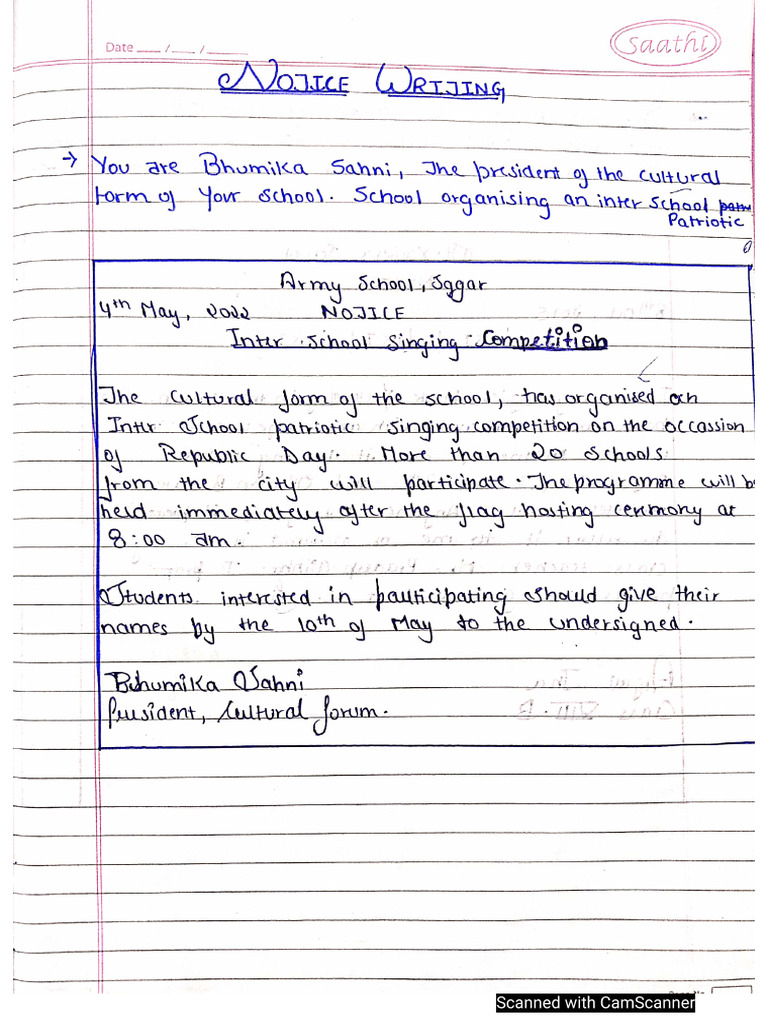 Date ___/___/_____
Saathi
NOTICE WRITING
→ You are Bhumika Sahni, The president of the cultural
form of your school. School organising an inter school
Patriotic
Army School, Sggar
4th May, 2022 NOTICE
Inter School Singing Competition
The cultural form of the school, has organised an
Inter School patriotic singing competition on the occassion
of Republic Day. More than 20 schools
from the city will participate. The programme will b
held immediately after the flag hosting cermony at
8:00 am.
Students interested in participating should give their
names by the 10th of May to the undersigned.
Bhumika Sahni
President, Cultural forum.
Scanned with CamScanner